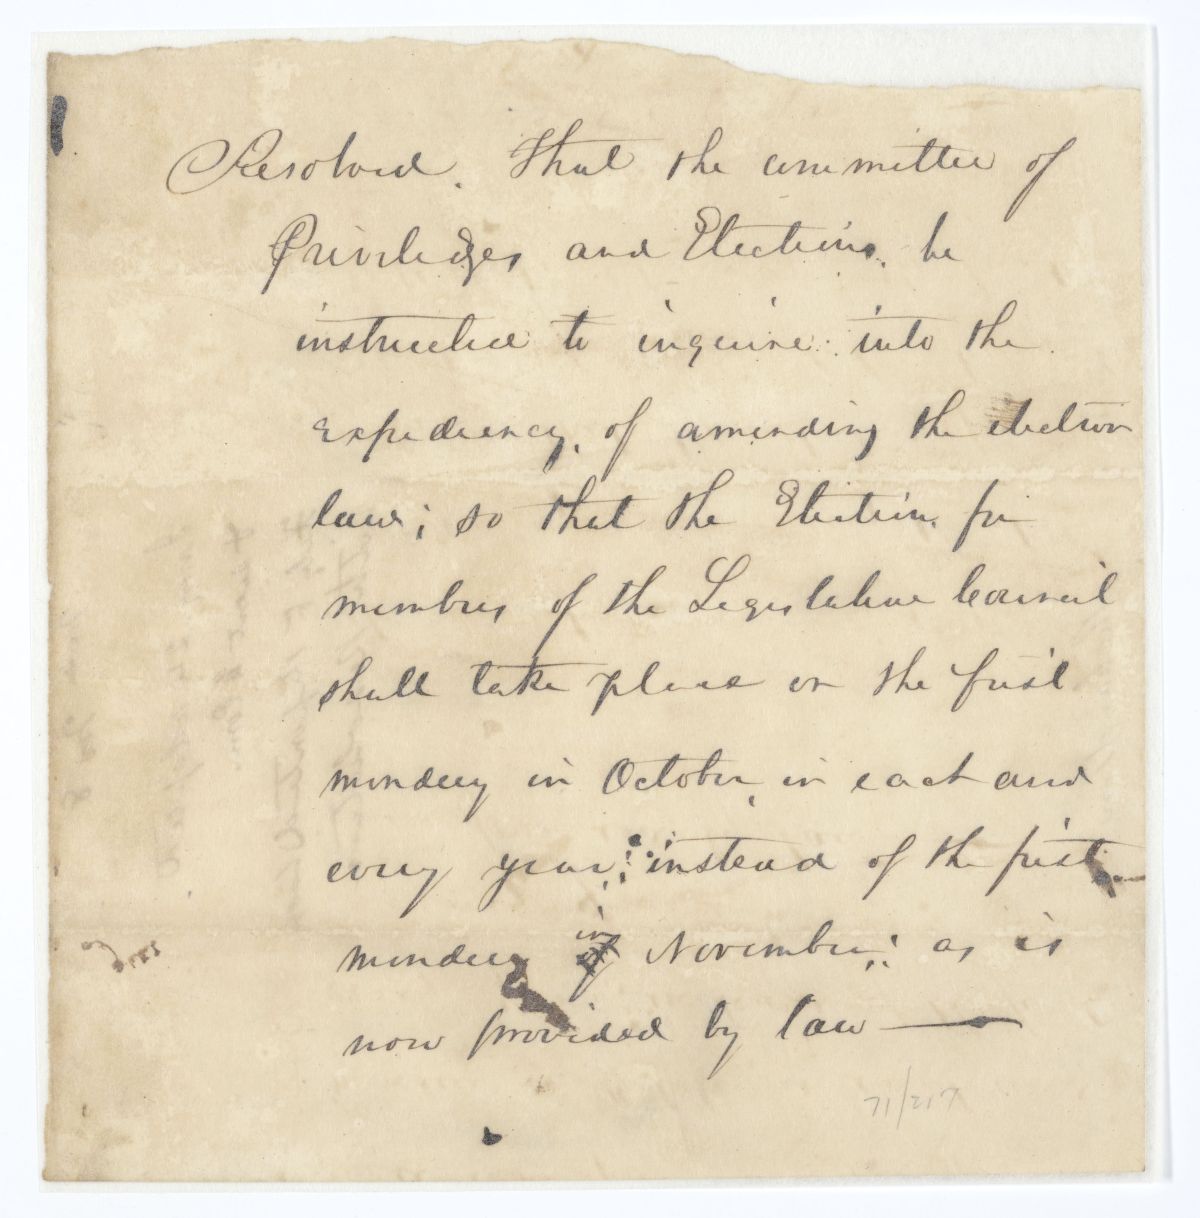 Resolved. That the committee of
Priviledges and Elections, be
instructed to inquire into the
expediency, of amending the election
law; so that the Election for
members of the Legislative Council
shall take place on the first
monday in October, in each and
every year; instead of the first
monday in November; as is
now provided by law —
71/217